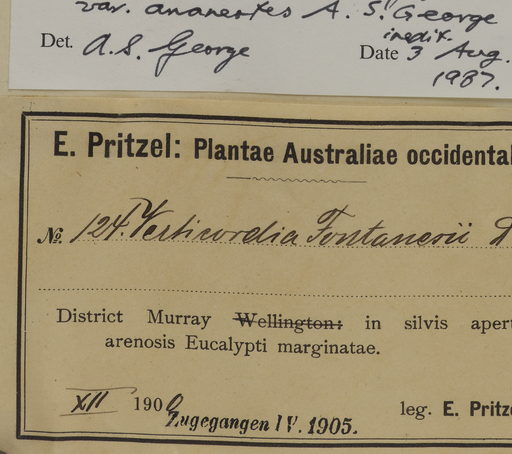 var. ananeotes A. S. George
inedit.
Det. A. S. George Date 3 Aug.
1987.
E. Pritzel: Plantae Australiae occidental
№ 124. Verticordia Fontanerii D
District Murray Wellington: in silvis apert
arenosis Eucalypti marginatae.
XII 1900
Zugegangen IV. 1905.
leg. E. Pritze